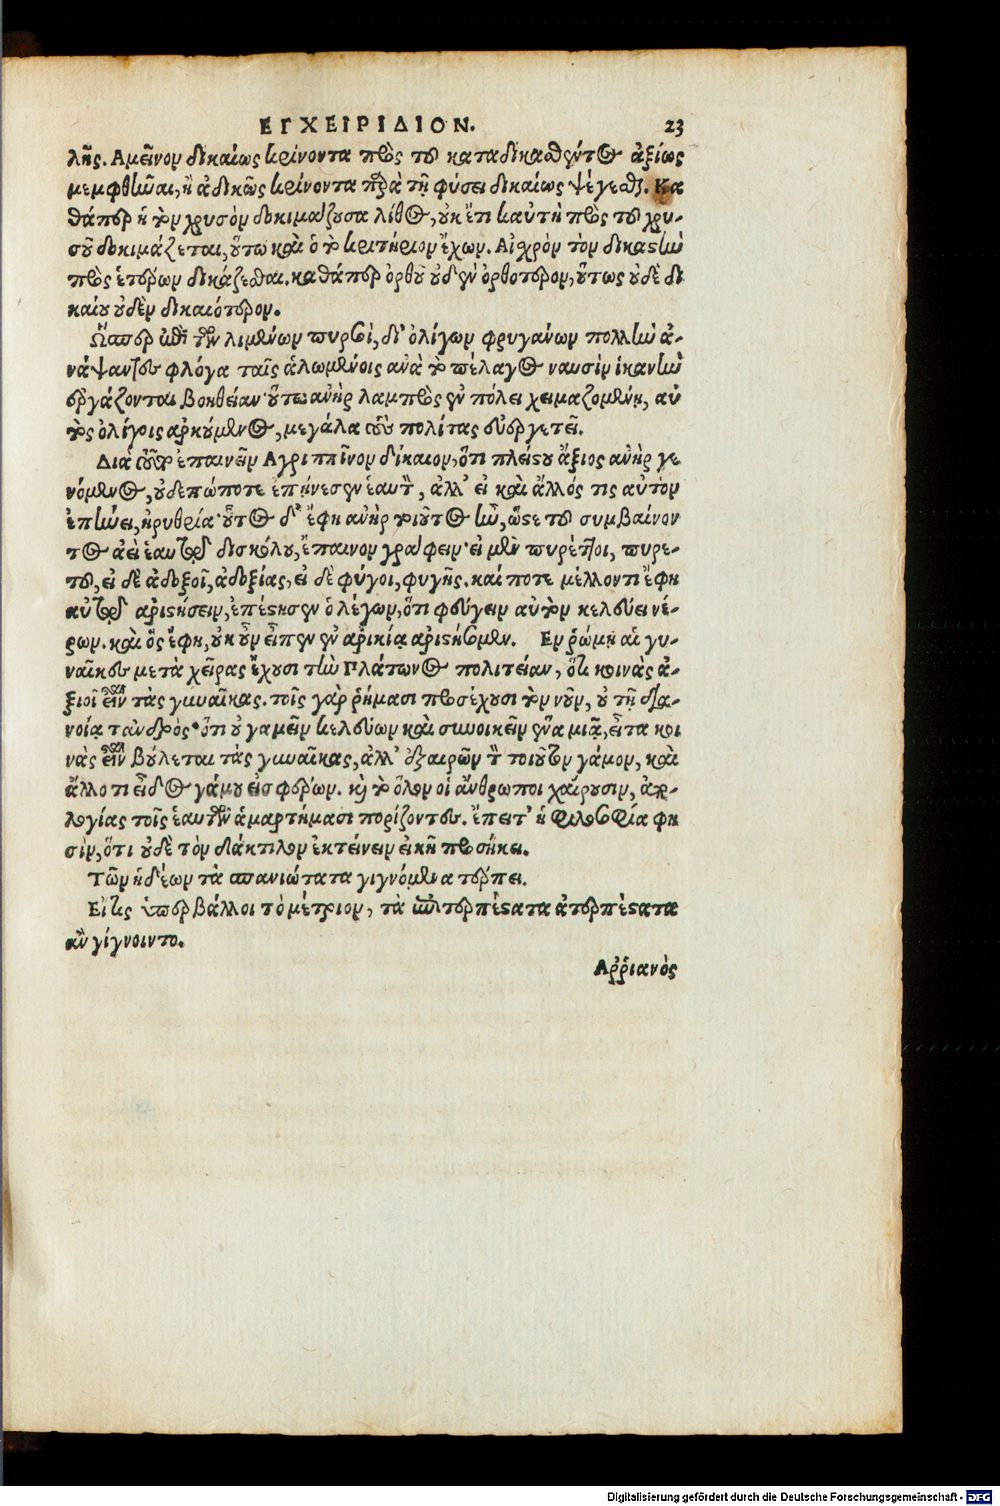 ΕΓΧΕΙΡΙΔΙΟΝ. 23
λῆς. Αμεῖνον δικαίως κρίνοντα πρὸς τοῦ καταδικασθέντος ἀξίως
μεμφθῆναι, ἢ ἀδίκως κρίνοντα παρὰ τῇ φύσει δικαίως ψέγεσθαι. Κα
θάπερ ἡ τὸν χρυσὸν δοκιμάζουσα λίθος, οὐκ ἔτι καὐτὴ πρὸς τοῦ χρυ-
σοῦ δοκιμάζεται, οὕτω καὶ ὁ τὸ κριτήριον ἔχων. Αἰσχρὸν τὸν δικαστὴν
πρὸς ἑτέρων δικάζεσθαι. καθάπερ ὀρθοῦ οὐδὲν ὀρθότερον, οὕτως οὐδὲ δι
καίου οὐδὲν δικαιότερον.
Ὥσπερ ἐπὶ τῶν λιμένων πυρσοὶ, δι' ὀλίγων φρυγάνων πολλὴν ἀ-
νάψαντες φλόγα ταῖς ἁλωμένοις ἀνὰ τὸ πέλαγος ναυσὶν ἱκανὴν
ἐργάζονται βοήθειαν· οὕτω ἀνὴρ λαμπρὸς ἐν πόλει χειμαζομένῃ, αὐ
τὸς ὀλίγοις ἀρκούμενος, μεγάλα τοὺς πολίτας εὐεργετεῖ.
Διὰ τοῦτο ἐπαινεῖν Αγριππῖνον δίκαιον, ὅτι πλείστου ἄξιος ἀνὴρ γε
νόμενος, οὐδεπώποτε ἐπῄνεσεν ἑαυτὸν, ἀλλ' εἰ καὶ ἄλλός τις αὐτὸν
ἐπῄνει, ἠρυθρία· οὗτος δ' ἔφη ἀνὴρ τοιοῦτος ἦν, ὥστε τοῦ συμβαίνον
τος ἀεὶ ἑαυτῷ δυσκόλου, ἔπαινον γράφειν· εἰ μὲν πυρέττοι, πυρε-
τοῦ, εἰ δὲ ἀδοξοῖ, ἀδοξίας, εἰ δὲ φύγοι, φυγῆς. καί ποτε μέλλοντι ἔφη
αὐτῷ ἀριστήσειν, ἐπέστησεν ὁ λέγων, ὅτι φεύγειν αὐτὸν κελεύει νέ-
ρων. καὶ ὃς ἔφη, οὐκ οὖν εἶπεν ἐν ἀρικίᾳ ἀριστήσομεν. Εν ῥώμῃ αἱ γυ-
ναῖκες μετὰ χεῖρας ἔχουσι τὴν Πλάτωνος πολιτείαν, ὅτι κοινὰς ἀ-
ξιοῖ εἶναι τὰς γυναῖκας. τοῖς γὰρ ῥήμασι προσέχουσι τὸν νοῦν, οὐ τῇ δια-
νοίᾳ τἀνδρὸς· ὅτι οὐ γαμεῖν κελεύων καὶ συνοικεῖν ἕνα μιᾷ, εἶτα κοι
νὰς εἶναι βούλεται τὰς γυναῖκας, ἀλλ' ἐξαιρῶν τὸν τοιοῦτον γάμον, καὶ
ἄλλο τι εἶδος γάμου εἰσφέρων. καὶ τὸ ὅλον οἱ ἄνθρωποι χαίρουσιν, ἀπο-
λογίας τοῖς ἑαυτῶν ἁμαρτήμασι πορίζοντες. ἔπειτ' ἡ φιλοσοφία φη
σὶν, ὅτι οὐδὲ τὸν δάκτιλον ἐκτείνειν εἰκῇ προσήκει.
Τῶν ἡδέων τὰ σπανιώτατα γιγνόμενα τέρπει.
Εἴ τις ὑπερβάλλοι τὸ μέτριον, τὰ ἐπιτερπέστατα ἀτερπέστατα
ἂν γίγνοιντο.
Αῤῥιανὸς
Digitalisierung gefördert durch die Deutsche Forschungsgemeinschaft - DFG